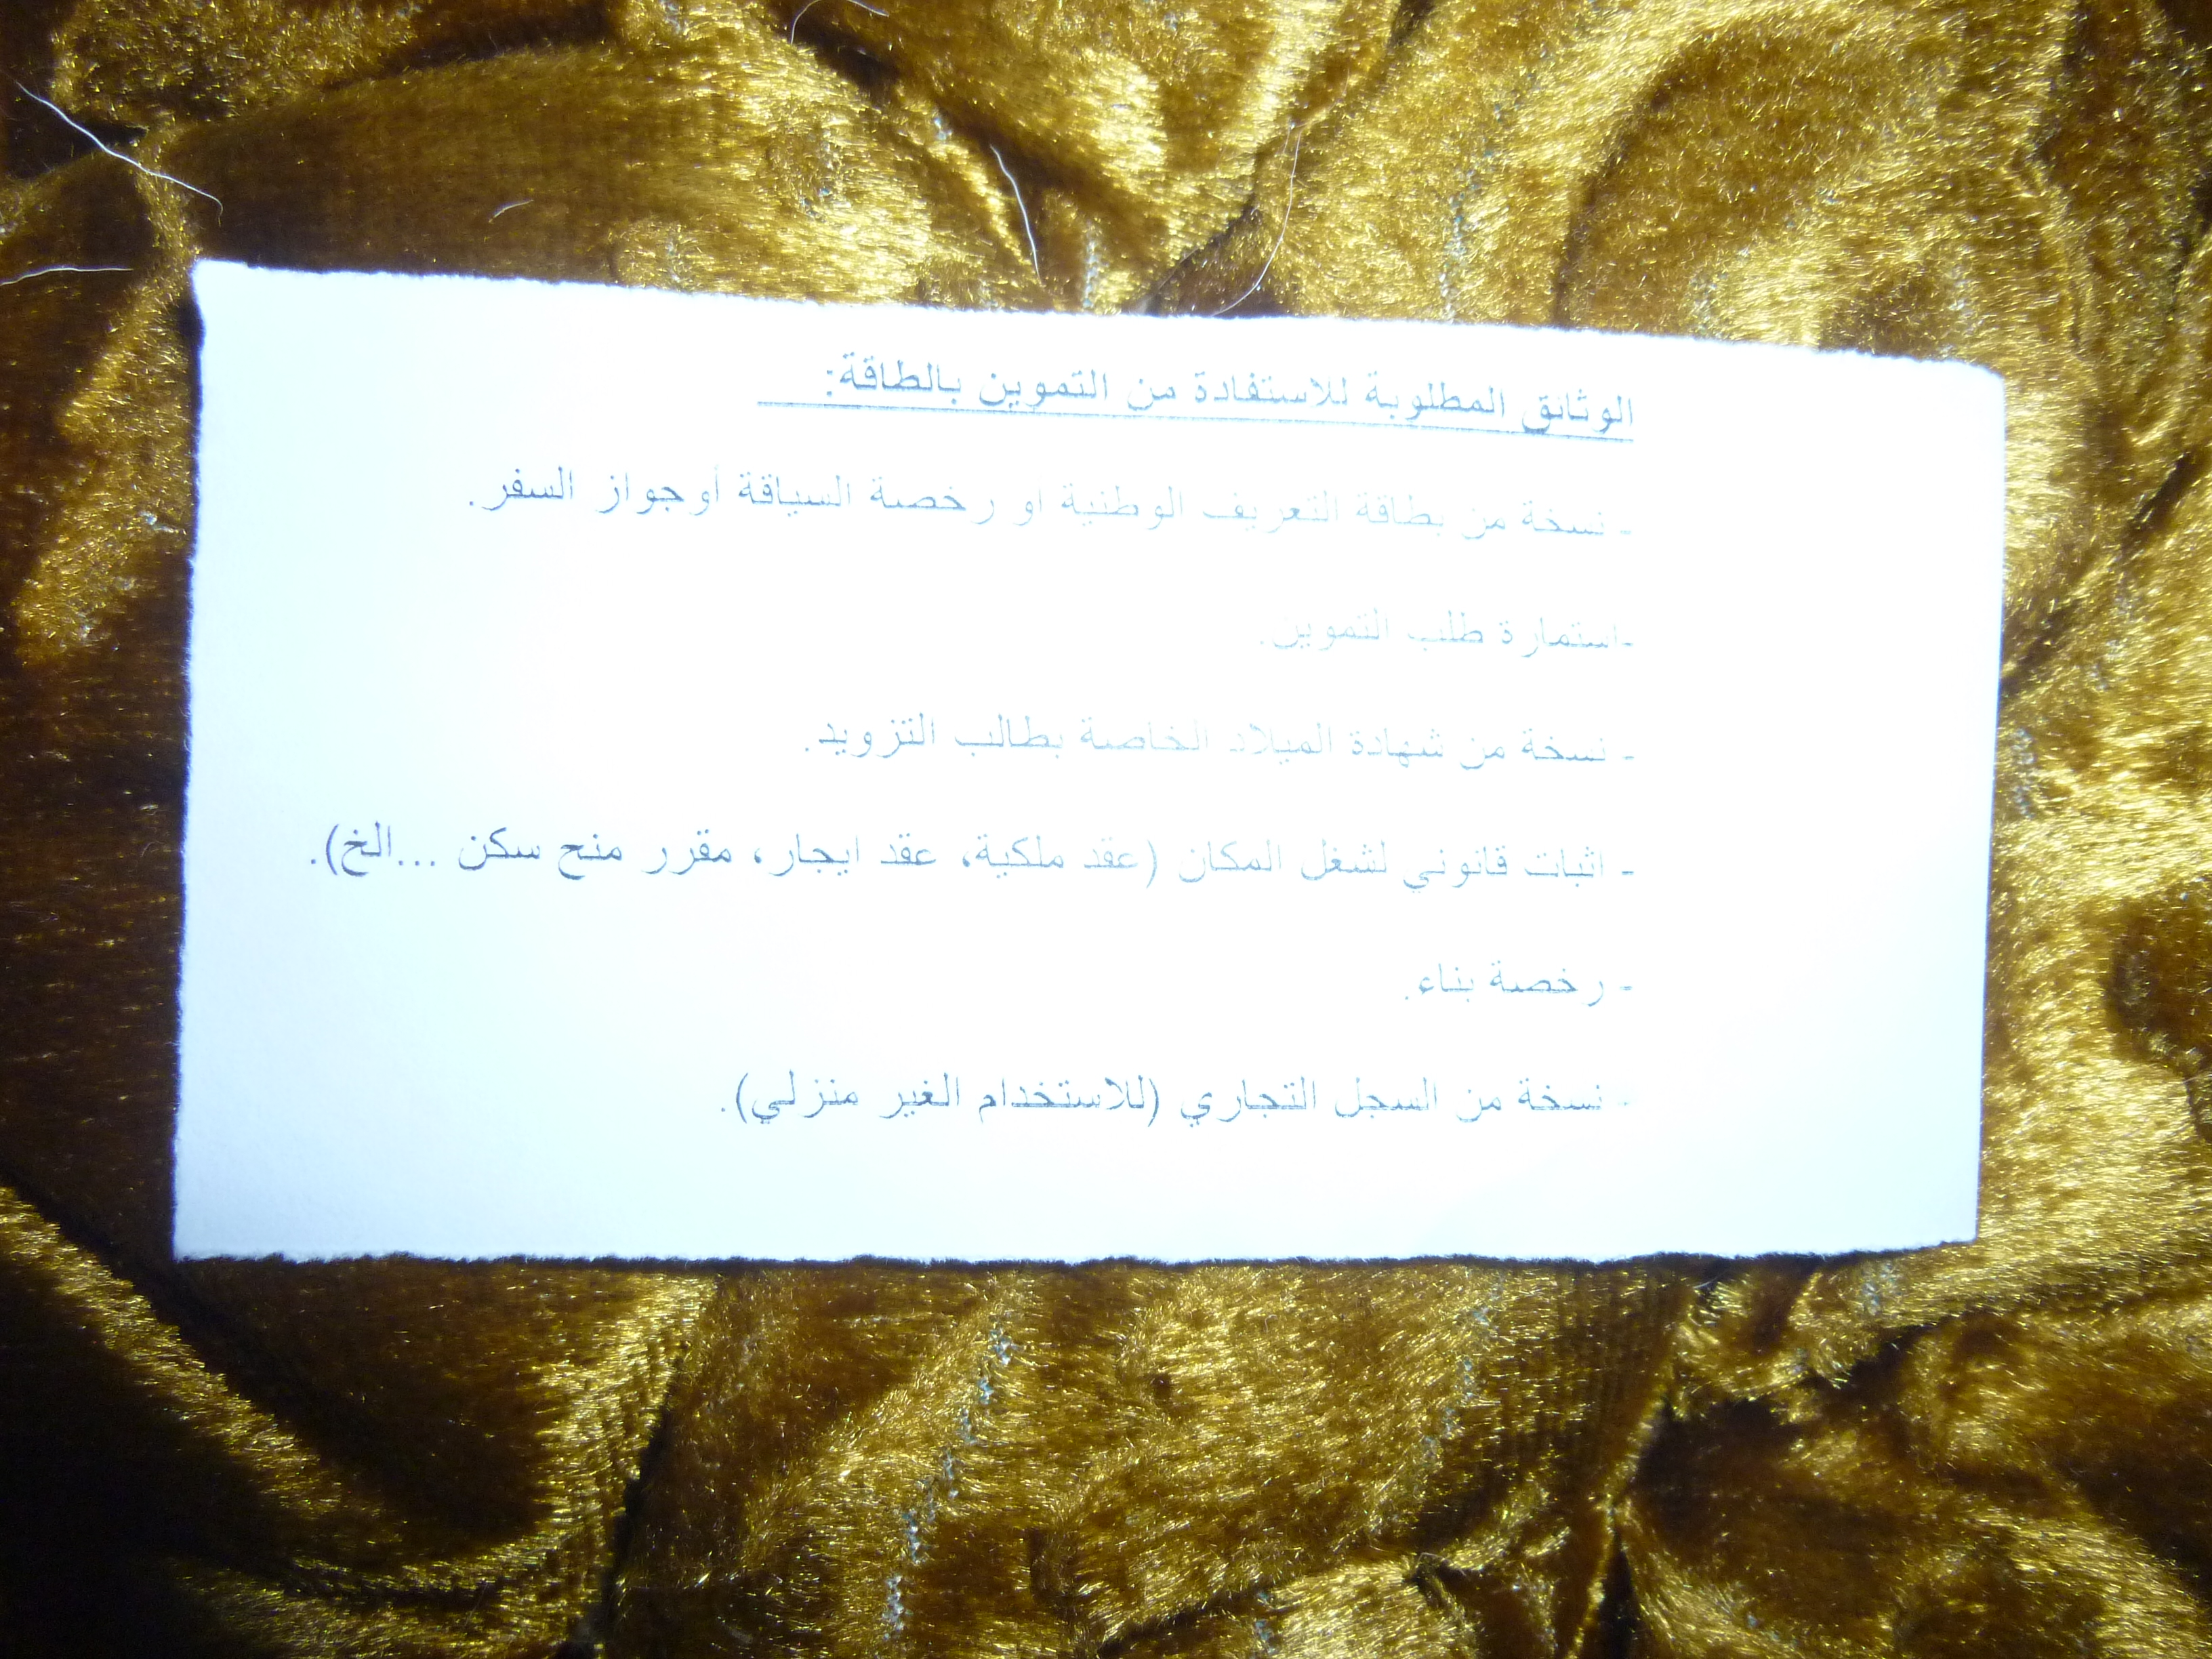 الوثائق المطلوبة للاستفادة من التموين بالطاقة:
- نسخة من بطاقة التعريف الوطنية او رخصة السياقة أوجواز السفر.
-استمارة طلب التموين.
- نسخة من شهادة الميلاد الخاصة بطالب التزويد.
- اثبات قانوني لشغل المكان (عقد ملكية، عقد ايجار، مقرر منح سكن ...الخ).
- رخصة بناء.
- نسخة من السجل التجاري (للاستخدام الغير منزلي).